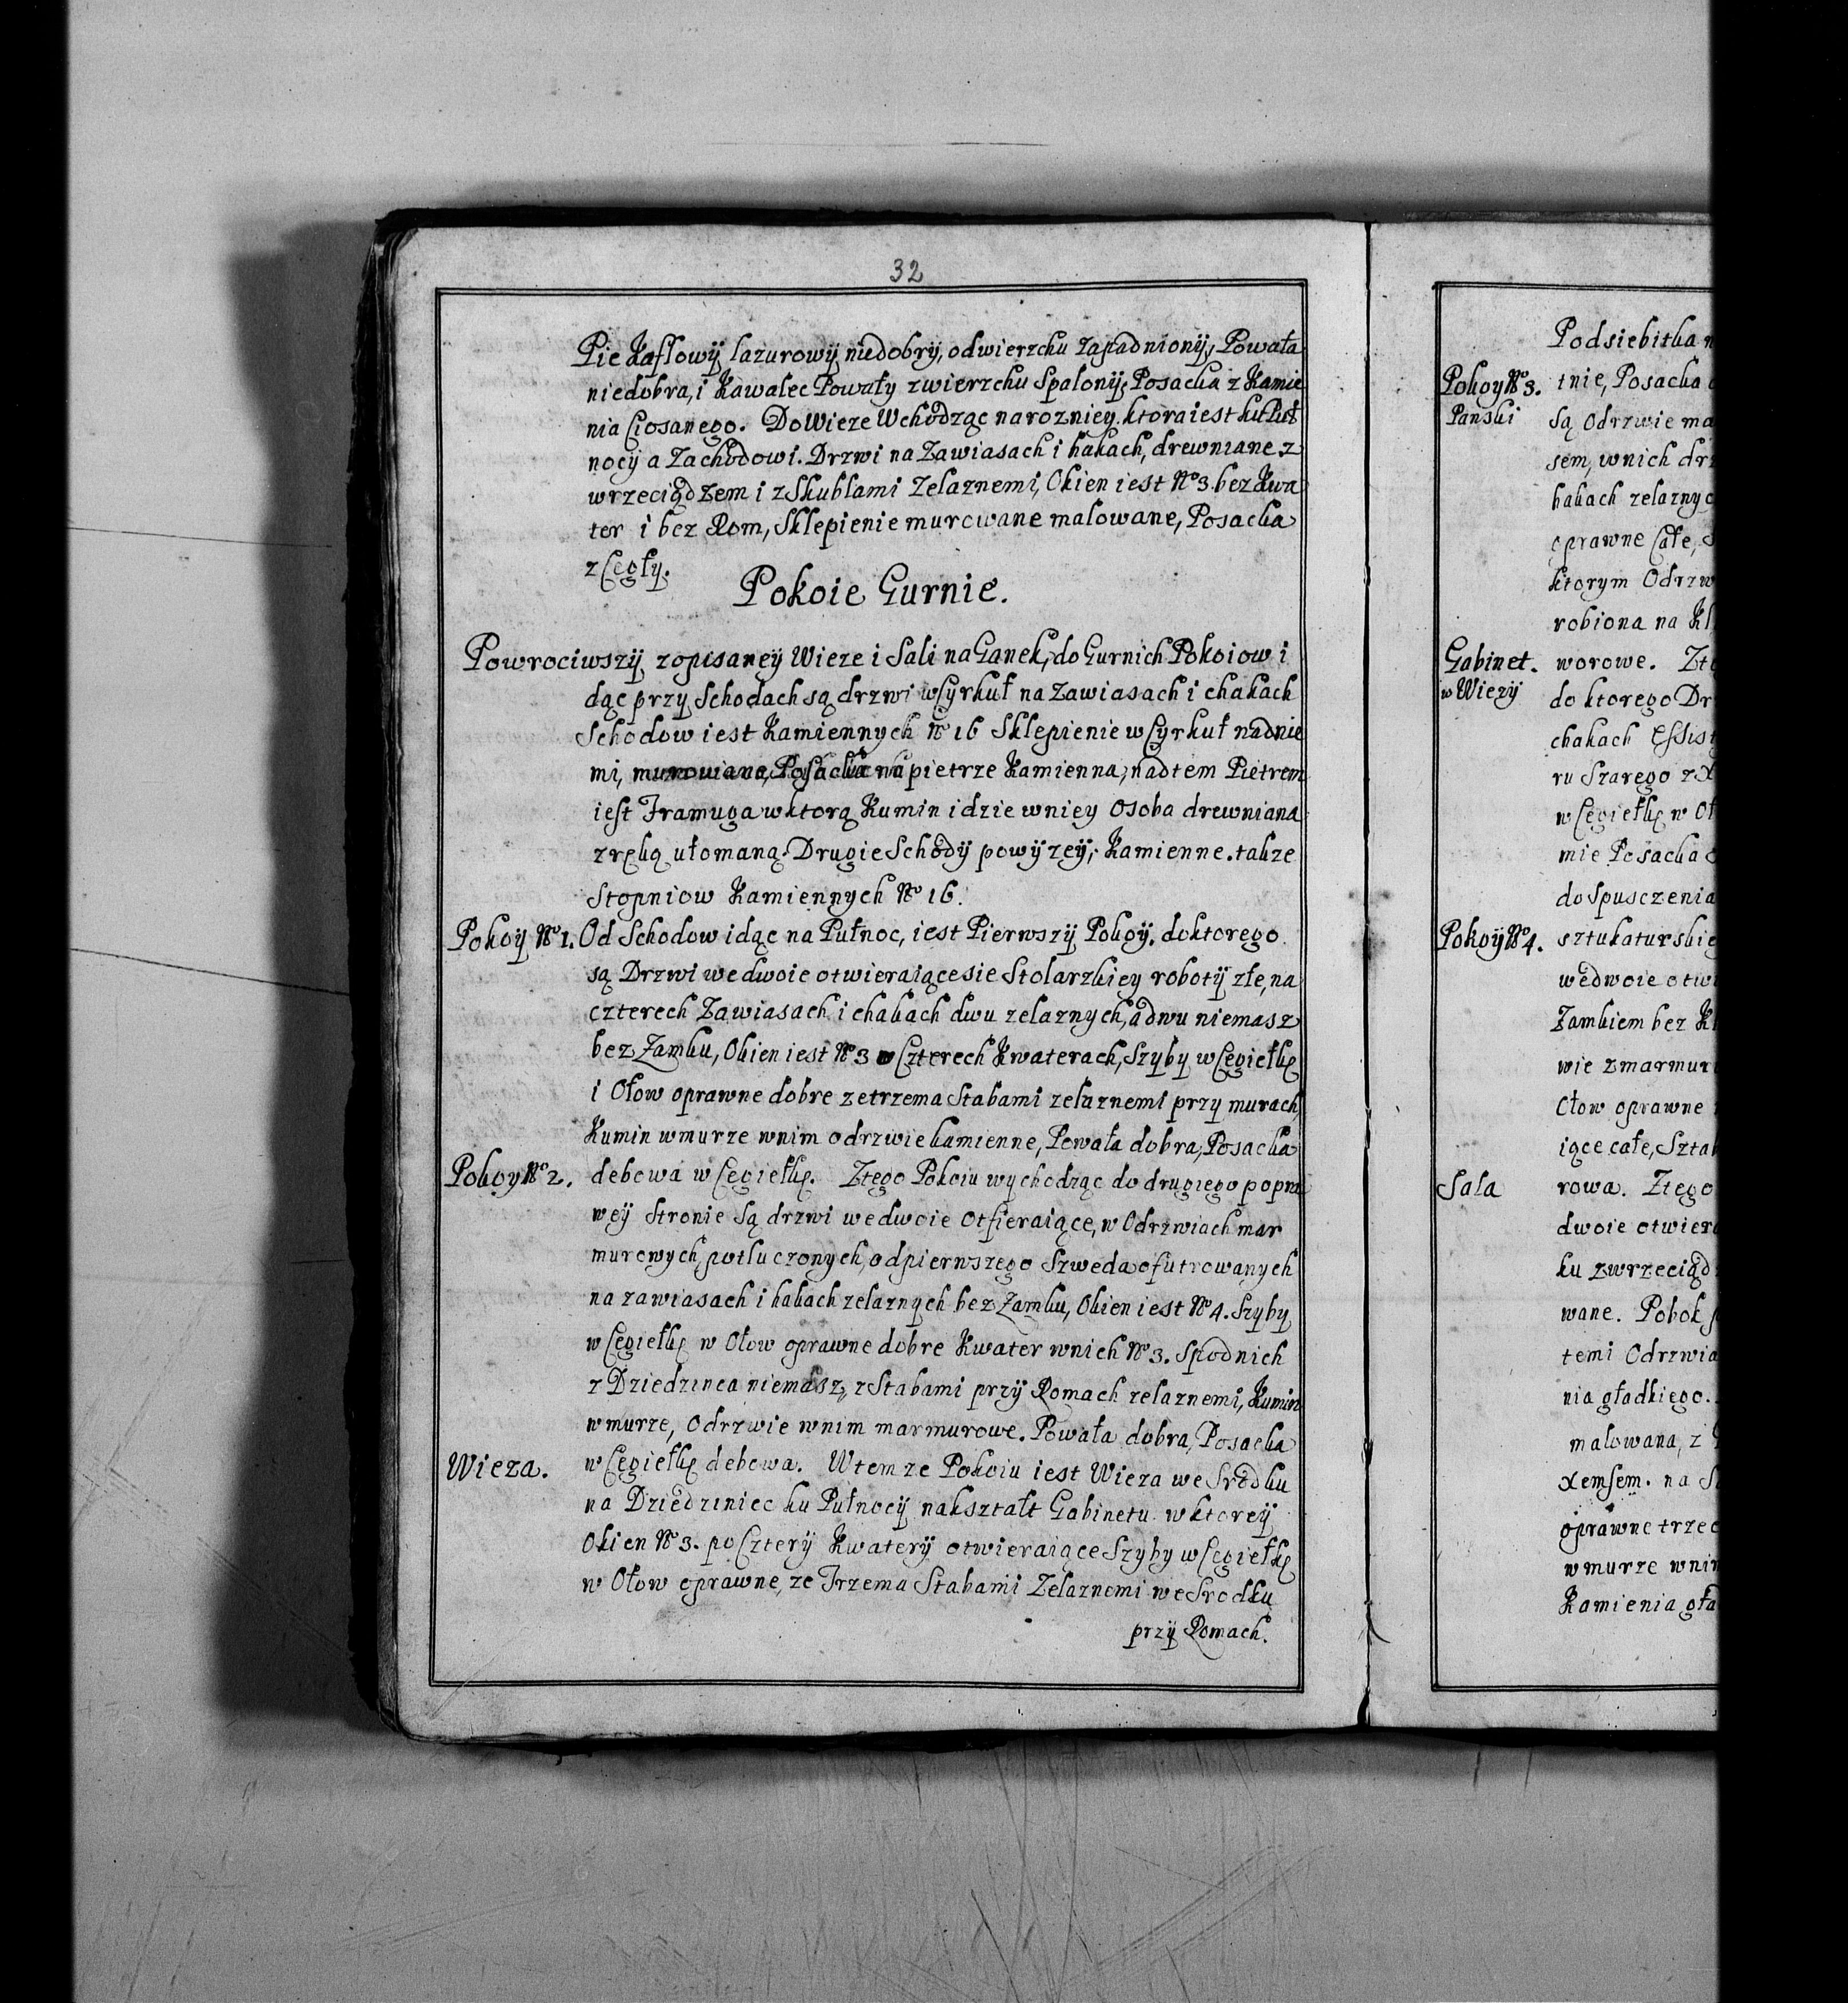 32
Pie Kaflowÿ lazurowÿ niedobrÿ, odwierzchu zapadnionÿ, Powała
niedobra, i Kawalec Powały zwierzchu Spalonÿ, Posacka z Kamie
nia Ciosanego. Do Wieze Wchodząc narozniey ktora iest ku Puł
nocÿ a Zachodowi. Drzwi na Zawiasach i hakach, drewniane z
wrzeciądzem i z Skublami Zelaznemi, Okien iest No 3. bez Kwa
ter i bez Rom, Sklepienie murowane malowane, Posacka
z Cegły.
Pokoie Gurnie.
Powrociwszÿ zopisaneÿ Wieze i Sali na Ganek, do Gurnich Pokoiow i
dąc przy Schodach są drzwi w Cyrkuł na Zawiasach i chakach
Schodow iest Kamiennych No 16 Sklepienie w Cyrkuł nad nie
mi, murowane, Posacka na pietrze Kamienna, nad tem Pietrem
iest Framuga w ktorą Kumin idzie wniey Osoba drewniana
z ręką ułomaną. Drugie Schodÿ powÿzeÿ, Kamienne. takze
Stopniow Kamiennych No 16.
Pokoÿ No 1. Od Schodow idąc na Pułnoc, iest Pierwszÿ Pokoÿ, doktorego
są Drzwi wedwoie otwieraiące sie Stolarzkiey robotÿ złe, na
czterech Zawiasach i chakach dwu zelaznych, a dwu niemasz
bez Zamku, Okien iest No 3 w Czterech Kwaterach, Szyby w Cegiełkę
i Ołow oprawne dobre zetrzema Stabami zelaznemi przy murach,
Kumin wmurze wnim odrzwie kamienne, Powała dobra, Posacka
Pokoy No 2. debowa w Cegiełkę. Ztego Pokoiu wychodząc do drugiego popra
weÿ Stronie Są drzwi wedwoie otfieraiące, w Odrzwiach mar
murowych, potłuczonych, odpierwszego Szweda ofutrowanych
na zawiasach i hakach zelaznych bez Zamku, Okien iest No 4. Szyby
w Cegiełkę w Ołow oprawne dobre Kwater wnich No 3. Spodnich
z Dziedzinca niemasz, z Stabami przÿ Romach zelaznemi, Kumin
wmurze, Odrzwie wnim marmurowe. Powała dobra, Posacka
Wieza. w Cegiełkę debowa. Wtemze Pokoiu iest Wieza we Srzodku
na Dziedziniec ku Pułnocÿ nakształt Gabinetu w ktoreÿ
Okien No 3. po Czterÿ Kwaterÿ otwieraiące Szyby w Cegiełkę
w Ołow oprawne, ze Trzema Stabami Zelaznemi weSrodku
przÿ Romach.
Podsiebitka
Pokoy No 3. tnie, Posacka
Panski są Odrzwie ma
sem, wnich drz
hakach zelaznyc
oprawne Całe,
ktorym Odrzw
robiona na Kl
Gabinet. worowe. Zte
w Wiezÿ do ktorego Dr
chakach
ru Szarego z
w Cegiełkę w Oł
mie Posacka
do Spusczenia
Pokoÿ No 4. sztukaturskie
wedwoie otwi
Zamkiem bez Kl
wie zmarmur
Ołow oprawne
iące całe, Sztab
Sala rowa. Ztego
dwoie otwiera
ku zwrzeciądz
wane. Pobok
temi Odrzwia
nia gładkiego.
malowana, z
xemsem. na S
oprawne trzec
wmurze wnim
Kamienia gła